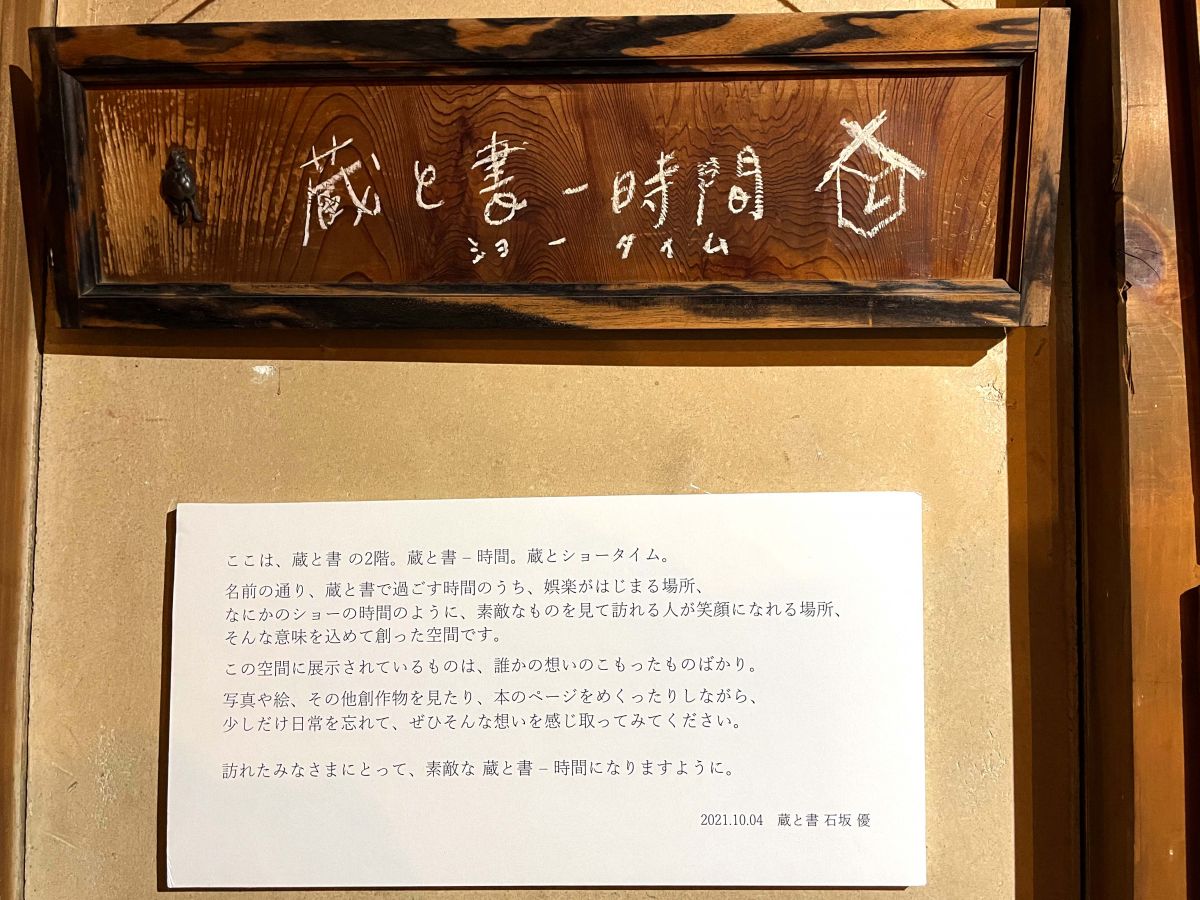 蔵と書ー時間
ショータイム
ここは、蔵と書 の2階。蔵と書 – 時間。蔵とショータイム。
名前の通り、蔵と書で過ごす時間のうち、娯楽がはじまる場所、
なにかのショーの時間のように、素敵なものを見て訪れる人が笑顔になれる場所、
そんな意味を込めて創った空間です。
この空間に展示されているものは、誰かの想いのこもったものばかり。
写真や絵、その他創作物を見たり、本のページをめくったりしながら、
少しだけ日常を忘れて、ぜひそんな想いを感じ取ってみてください。
訪れたみなさまにとって、素敵な 蔵と書 – 時間になりますように。
2021.10.04　蔵と書 石坂 優